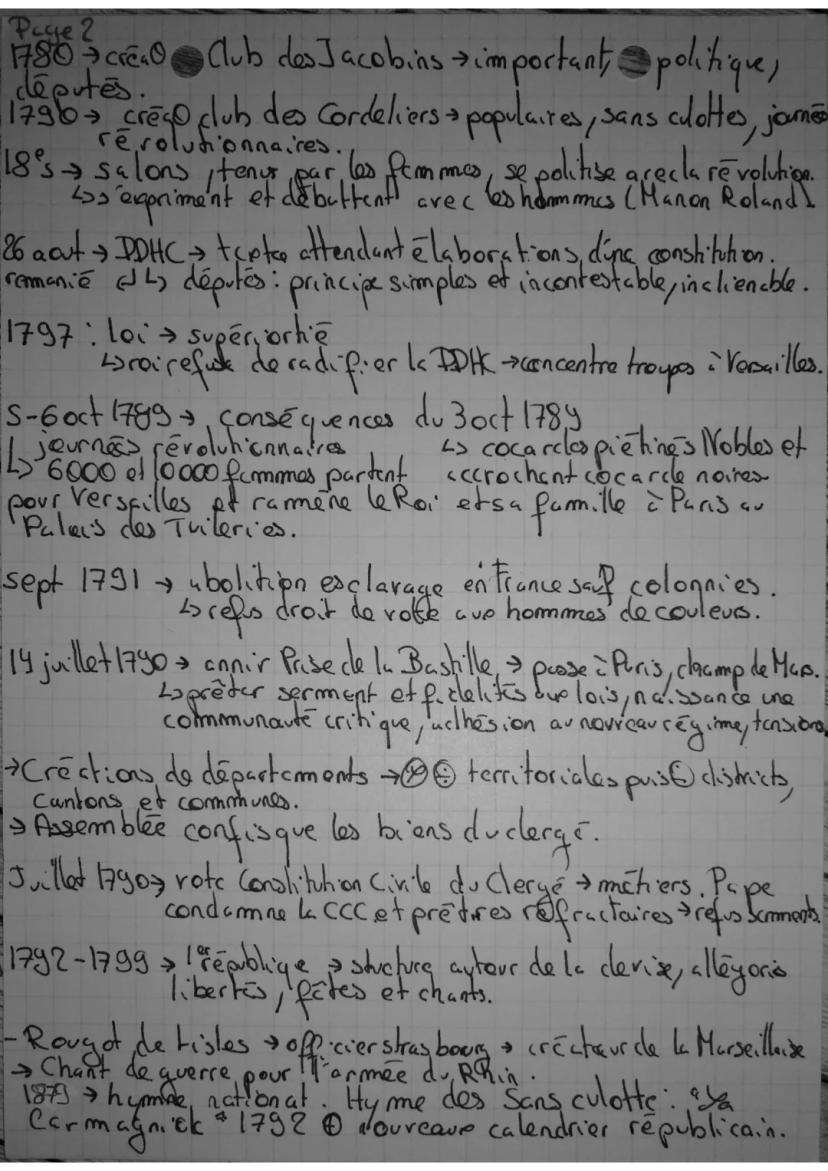 Page 2
1780 → créa° Club des Jacobins → important, politique,
députés.
1790 → créa° club des Cordeliers → populaires, sans culottes, journée
révolutionnaires.
18e s → salons, tenus par les femmes, se politise avec la révolution.
↳ s'expriment et débattent avec les hommes (Manon Roland).
26 aout → DDHC → texte attendant élaborations d'une constitution.
remanié ↳ députés : principe simples et incontestable, inalienable.
1797 : loi → supériorité
↳ roi refuse de radifier la DDHC → concentre troupes à Versailles.
5-6 oct 1789 → conséquences du 3 oct 1789
↳ journées révolutionnaires ↳ cocardes piétinés Nobles et
↳ 6000 et 10000 femmes partent accrochent cocarde noires
pour Versailles et ramène le Roi et sa famille à Paris au
Palais des Tuileries.
sept 1791 → abolition esclavage en France sauf colonnies.
↳ refus droit de vote aux hommes de couleurs.
14 juillet 1790 → annir Prise de la Bastille → passe à Paris, champ de Mars.
↳ prêter serment et fidelités aux lois, naissance une
communauté critique, adhésion au nouveau régime, tensions
→ Créations de départements → territoriales puis districts,
cantons et communes.
→ Assemblée confisque les biens du clergé.
Juillet 1790 → vote Constitution Civile du Clergé → métiers. Pape
condamne la CCC et prêtres réfractaires → refus serments.
1792-1799 → 1er république → structure autour de la devise, allégoris
libertés, fêtes et chants.
- Rouget de Lisles → officier strasbourg → créateur de la Marseillaise
→ Chant de guerre pour l'armée du Rhin.
1879 → hymne national. Hyme des Sans culotte :
1792 ⊕ nouveaux calendrier républicain.